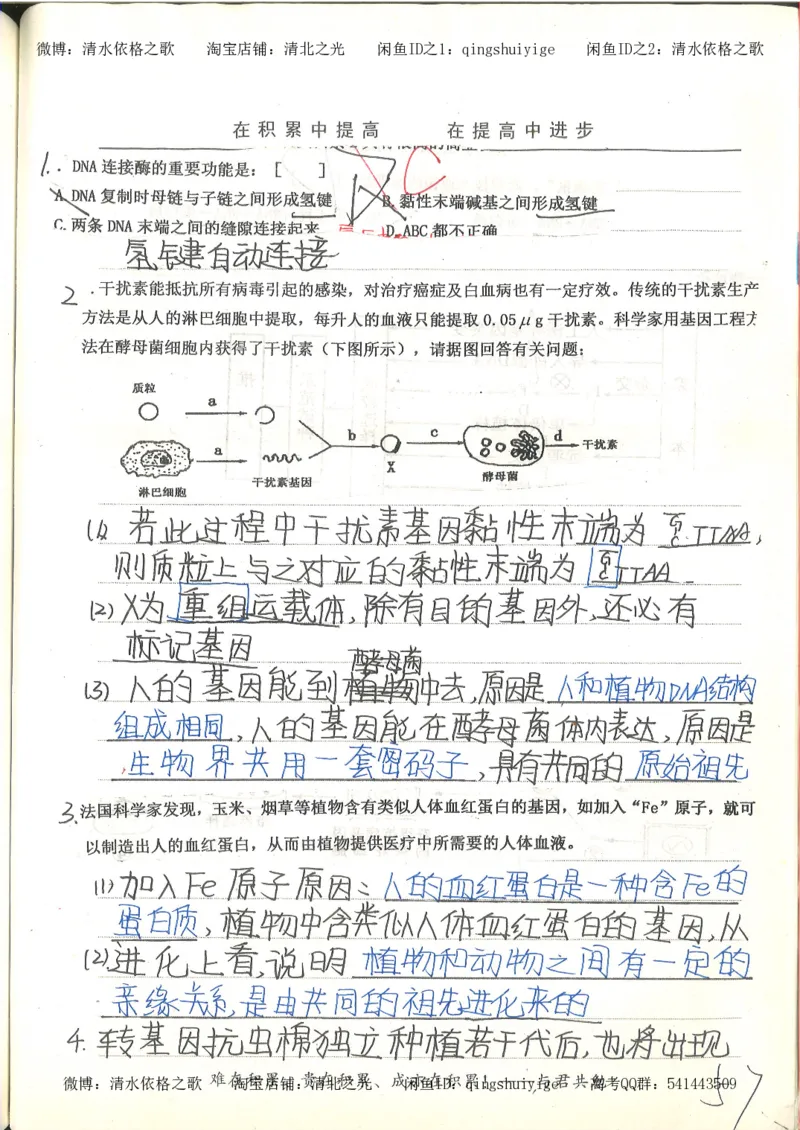 微博：清水依格之歌 淘宝店铺：清北之光 闲鱼ID之1：qingshuiyige 闲鱼ID之2：清水依格之歌
在积累中提高 在提高中进步
1. . DNA 连接酶的重要功能是：[ ] C
A. DNA 复制时母链与子链之间形成氢键 B. 黏性末端碱基之间形成氢键
C. 两条 DNA 末端之间的缝隙连接起来 D. ABC 都不正确
氢键自动连接
2 .干扰素能抵抗所有病毒引起的感染，对治疗癌症及白血病也有一定疗效。传统的干扰素生产
方法是从人的淋巴细胞中提取，每升人的血液只能提取 0.05μg 干扰素。科学家用基因工程方
法在酵母菌细胞内获得了干扰素（下图所示），请据图回答有关问题：
质粒
a
a b c d 干扰素
X
淋巴细胞 干扰素基因 酵母菌
(1) 若此过程中干扰素基因黏性末端为
则质粒上与之对应的黏性末端为
(2) X为重组运载体，除有目的基因外，还必有
标记基因
酵母菌
(3) 人的基因能到植物中去，原因是人和植物DNA结构
组成相同，人的基因能在酵母菌体内表达，原因是
生物界共用一套密码子，具有共同的原始祖先
3. 法国科学家发现，玉米、烟草等植物含有类似人体血红蛋白的基因，如加入“Fe”原子，就可
以制造出人的血红蛋白，从而由植物提供医疗中所需要的人体血液。
(1) 加入Fe原子原因：人的血红蛋白是一种含Fe的
蛋白质，植物中含类似人体血红蛋白的基因，从
(2) 进化上看，说明植物和动物之间有一定的
亲缘关系，是由共同的祖先进化来的
4. 转基因抗虫棉独立种植若干代后，也将出现
微博：清水依格之歌 淘宝店铺：清北之光 闲鱼ID：qingshuiyige 高考QQ群：541443509
57